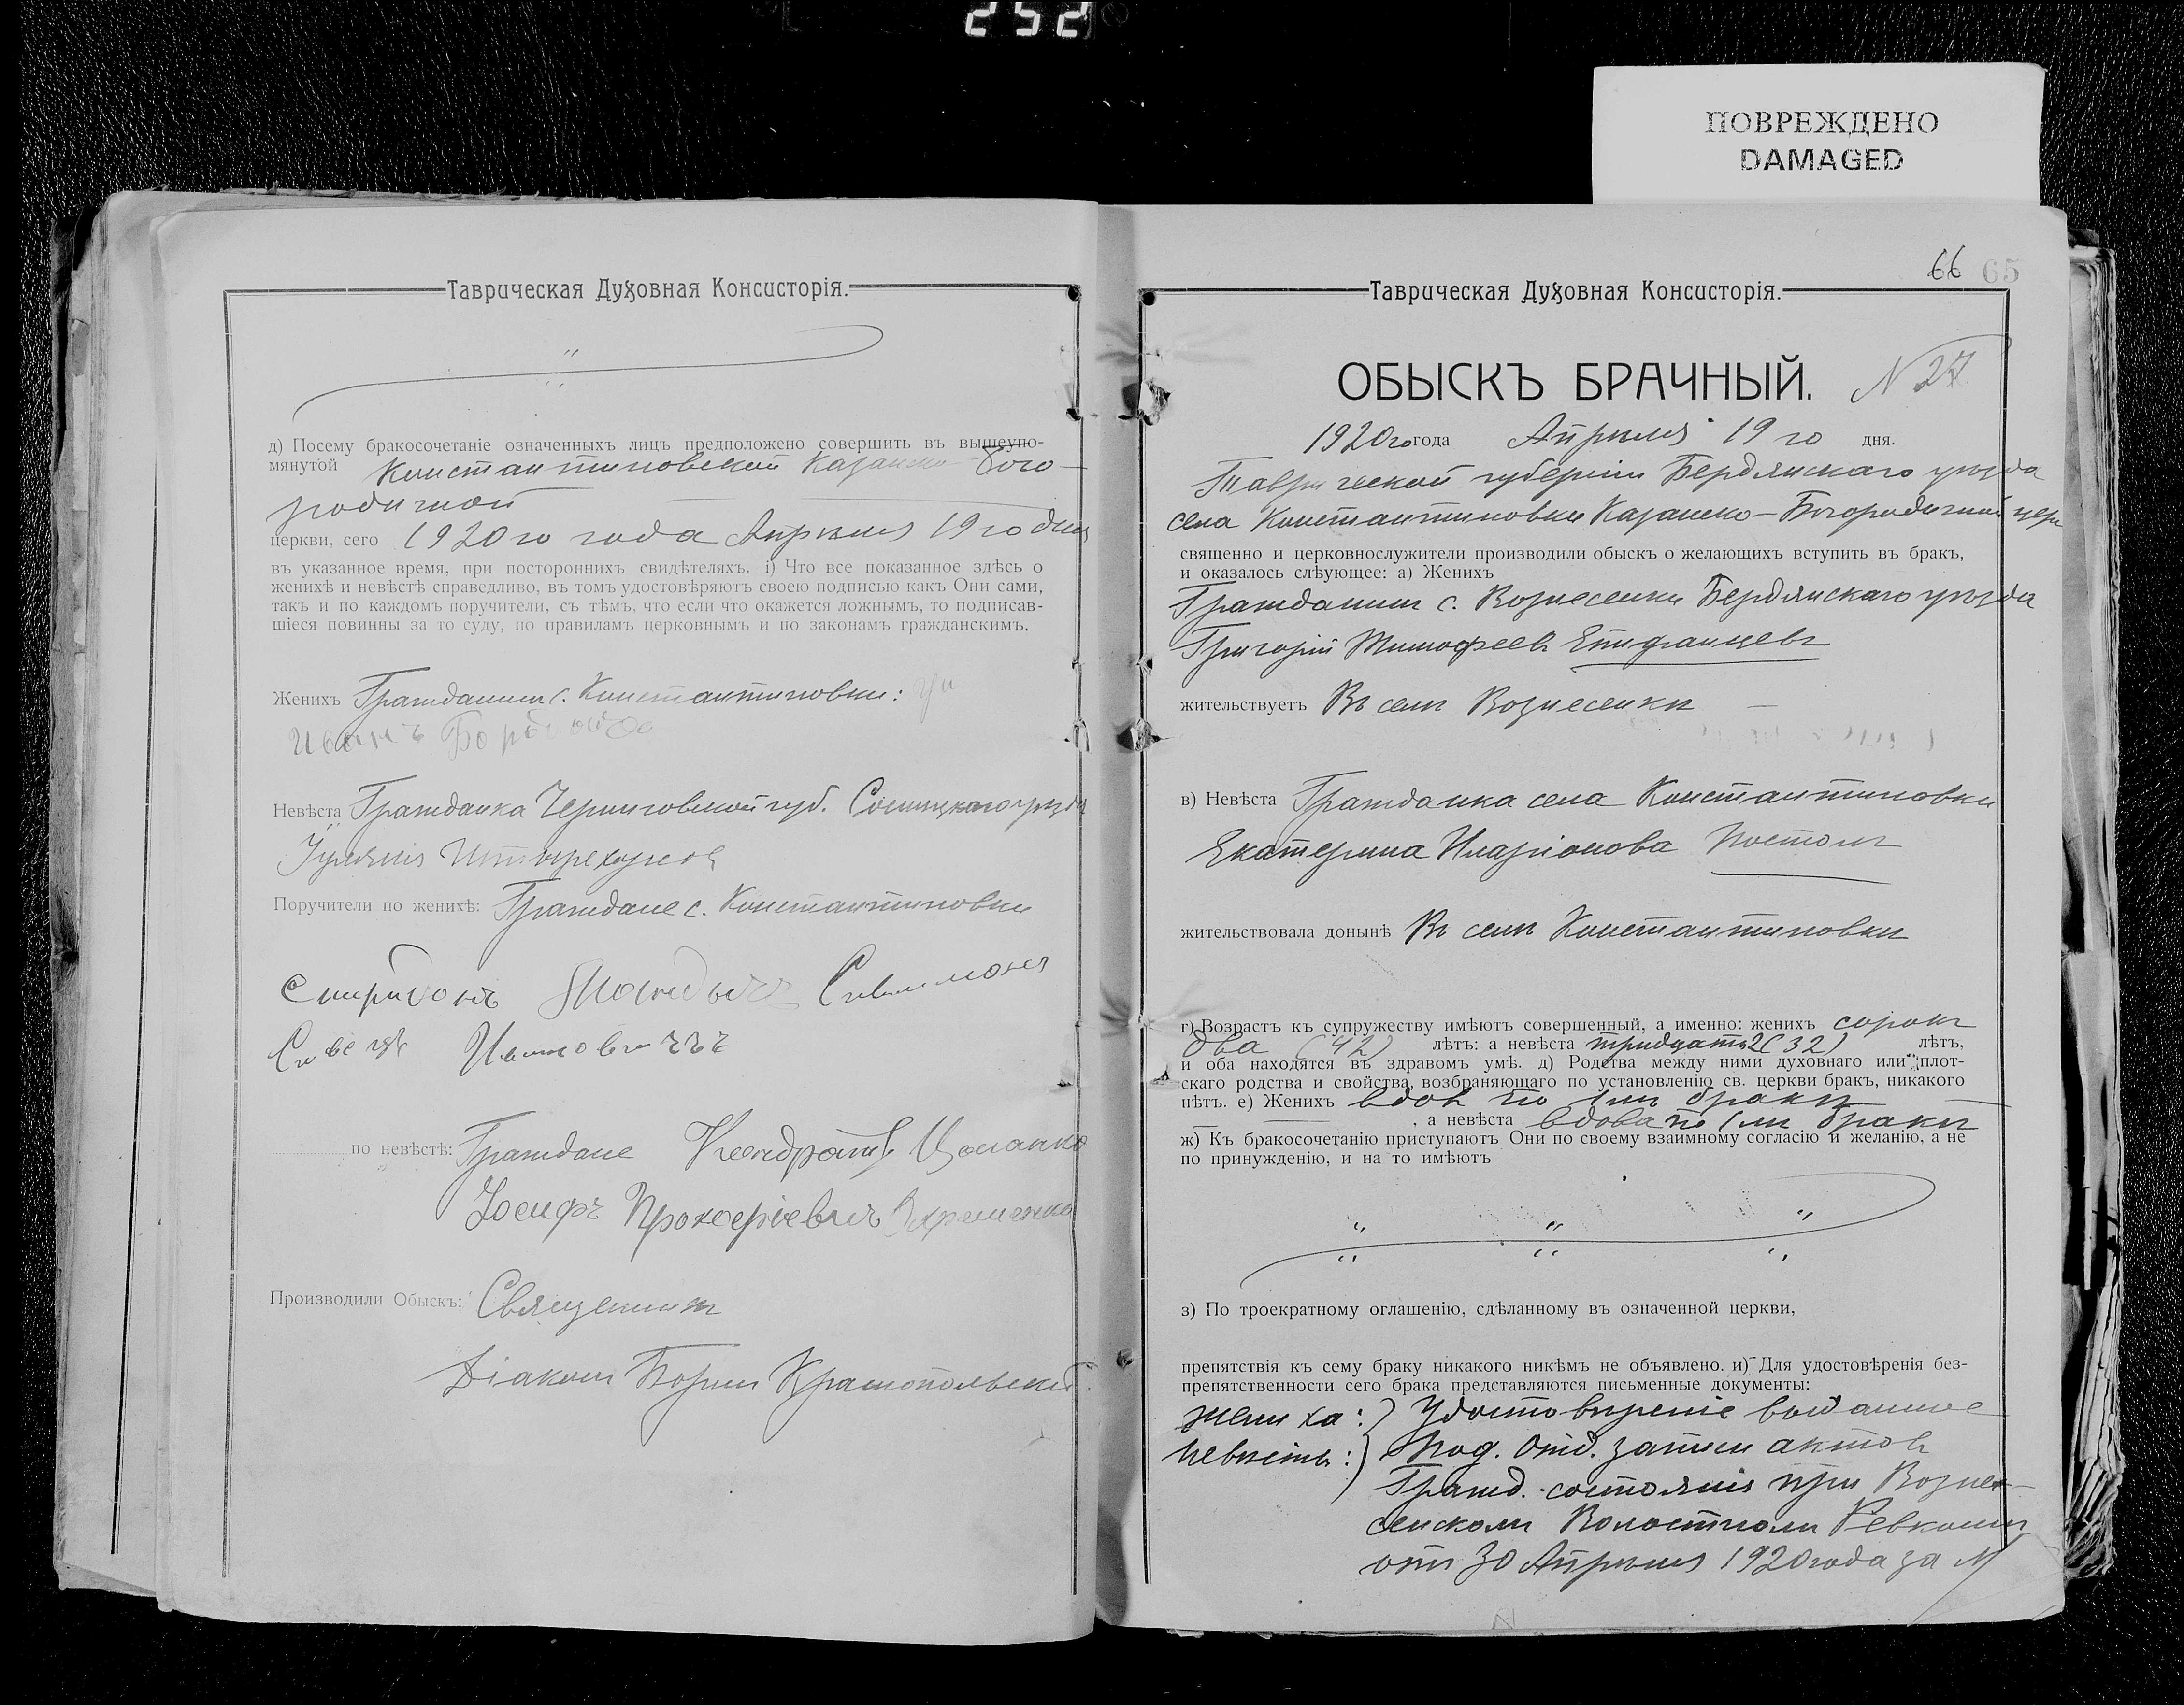 252
ПОВРЕЖДЕНО
DAMAGED
Таврическая Духовная Консисторія.
д) Посему бракосочетаніе означенныхъ лицъ предположено совершить въ вышеупо-
мянутой Константиновской Казанско-Бого-
родичной
церкви, сего 1920го года Апрѣля 19го дня
въ указанное время, при постороннихъ свидѣтеляхъ. і) Что все показанное здѣсь о
женихѣ и невѣстѣ справедливо, въ томъ удостовѣряютъ своею подписью какъ Они сами,
такъ и по каждомъ поручители, съ тѣмъ, что если что окажется ложнымъ, то подписав-
шіеся повинны за то суду, по правиламъ церковнымъ и по законамъ гражданскимъ.
Женихъ Гражданин с. Константиновки:
Иванъ
Невѣста Гражданка Черниговской губ. Сосницкого уѣзда
Поручители по женихѣ: Граждане с. Константиновки
Спиридонъ
по невѣстѣ: Граждане Кондратъ
Іосифъ Прокофіевичъ
Производили Обыскъ: Священник
Діакон Борис Краснопольскій
66 65
Таврическая Духовная Консисторія.
ОБЫСКЪ БРАЧНЫЙ. N 27
1920го года Апрѣля 19го дня.
Таврической губерніи Бердянскаго уѣзда
села Константиновки Казанско-Богородичной цер
священно и церковнослужители производили обыскъ о желающихъ вступить въ бракъ,
и оказалось слѣующее: а) Женихъ
Гражданин с. Вознесенки Бердянскаго уѣзда
Григорій Тимофеев Епифанцевъ
жительствуетъ Въ селѣ Вознесенкѣ
в) Невѣста Гражданка села Константиновки
Екатерина Иларіонова
жительствовала донынѣ Въ селѣ Константиновкѣ
г) Возрастъ къ супружеству имѣютъ совершенный, а именно: женихъ сорок
два (42) лѣтъ: а невѣста тридцать 2 (32) лѣтъ,
и оба находятся въ здравомъ умѣ. д) Родства между ними духовнаго или плот-
скаго родства и свойства, возбраняющаго по установленію св. церкви бракъ, никакого
нѣтъ. е) Женихъ вдов по 1м бракѣ
, а невѣста вдова по 1м бракѣ
ж) Къ бракосочетанію приступаютъ Они по своему взаимному согласію и желанію, а не
по принужденію, и на то имѣютъ
з) По троекратному оглашенію, сдѣланному въ означенной церкви,
препятствія къ сему браку никакого никѣмъ не объявлено. и) Для удостовѣренія без-
препятственности сего брака представляются письменные документы:
жениха: ) Удостовѣреніе выданное
невѣсты: ) Под. Отд. записи актов
Гражд. состоянія при Возне-
сенском Волостном Ревкоме
от 30 Апрѣля 1920 года за N